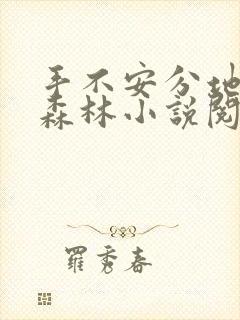 手不安分地
森林小說閱
羅秀春